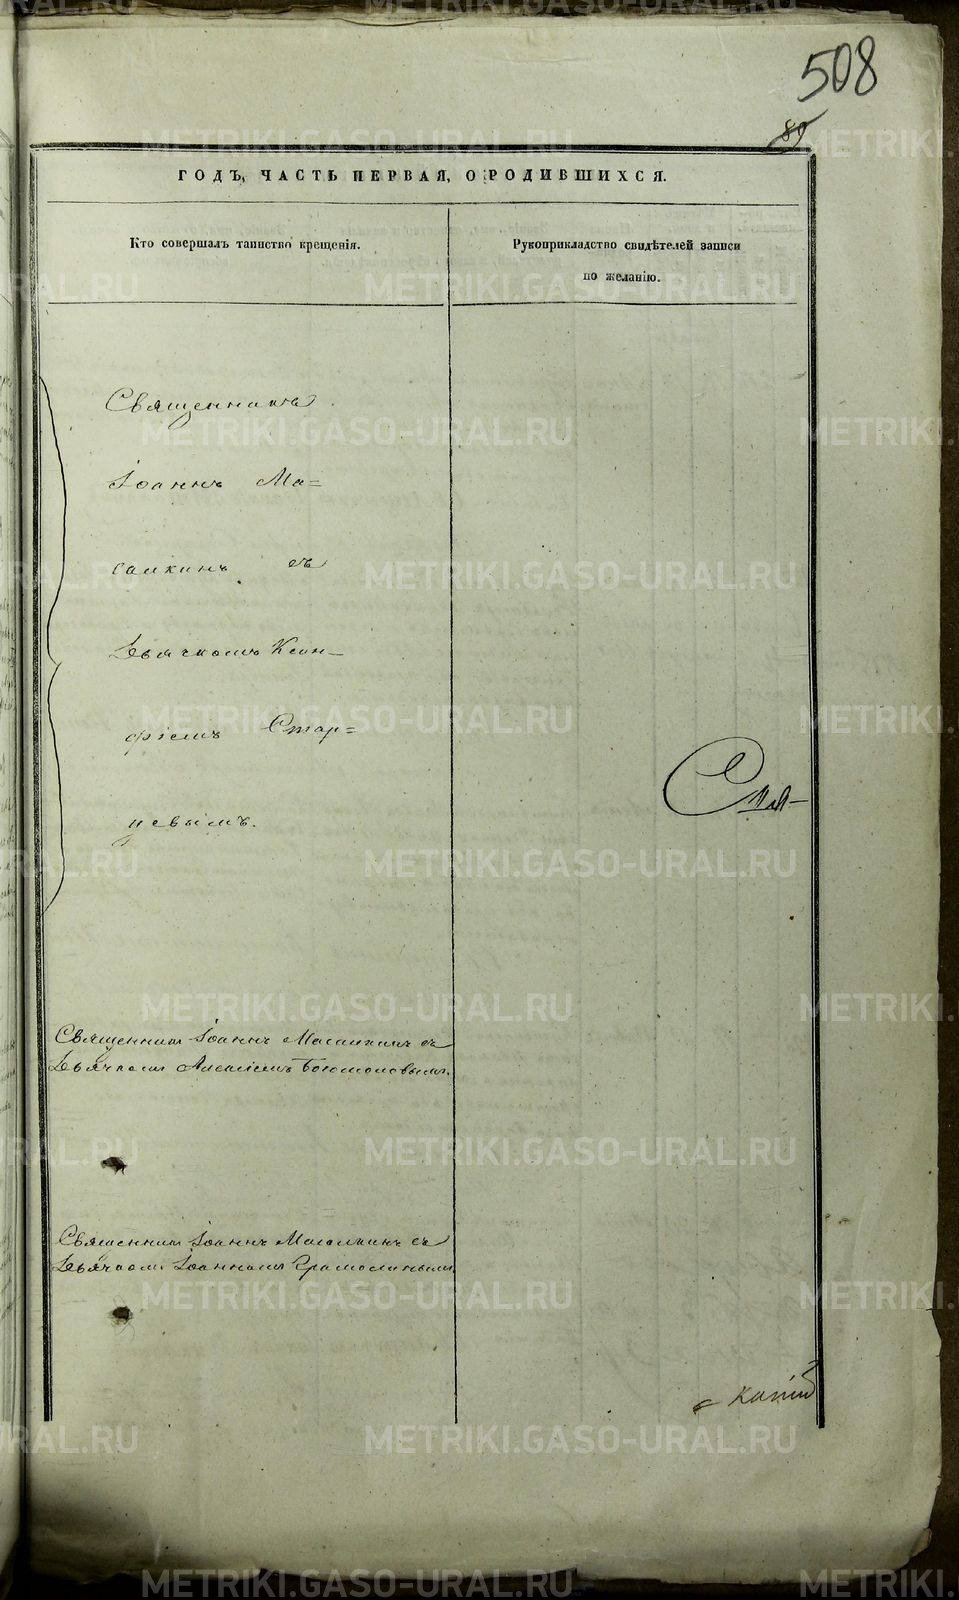 508
89
ГОДЪ, ЧАСТЬ ПЕРВАЯ, О РОДИВШИХСЯ.
Кто совершалъ таинство крещенія.
Рукоприкладство свидѣтелей записи
по желанію.
Священникъ
Іоаннъ Ма=
салкинъ съ
Дьячкомъ Ксен-
фіемъ Стар=
цевымъ.
Священникъ Іоаннъ Масалкинъ съ
Дьячкомъ Алексіемъ Богомоловымъ.
Священникъ Іоаннъ Масалкинъ съ
Дьячкомъ Іоанномъ
METRIKI.GASO-URAL.RU